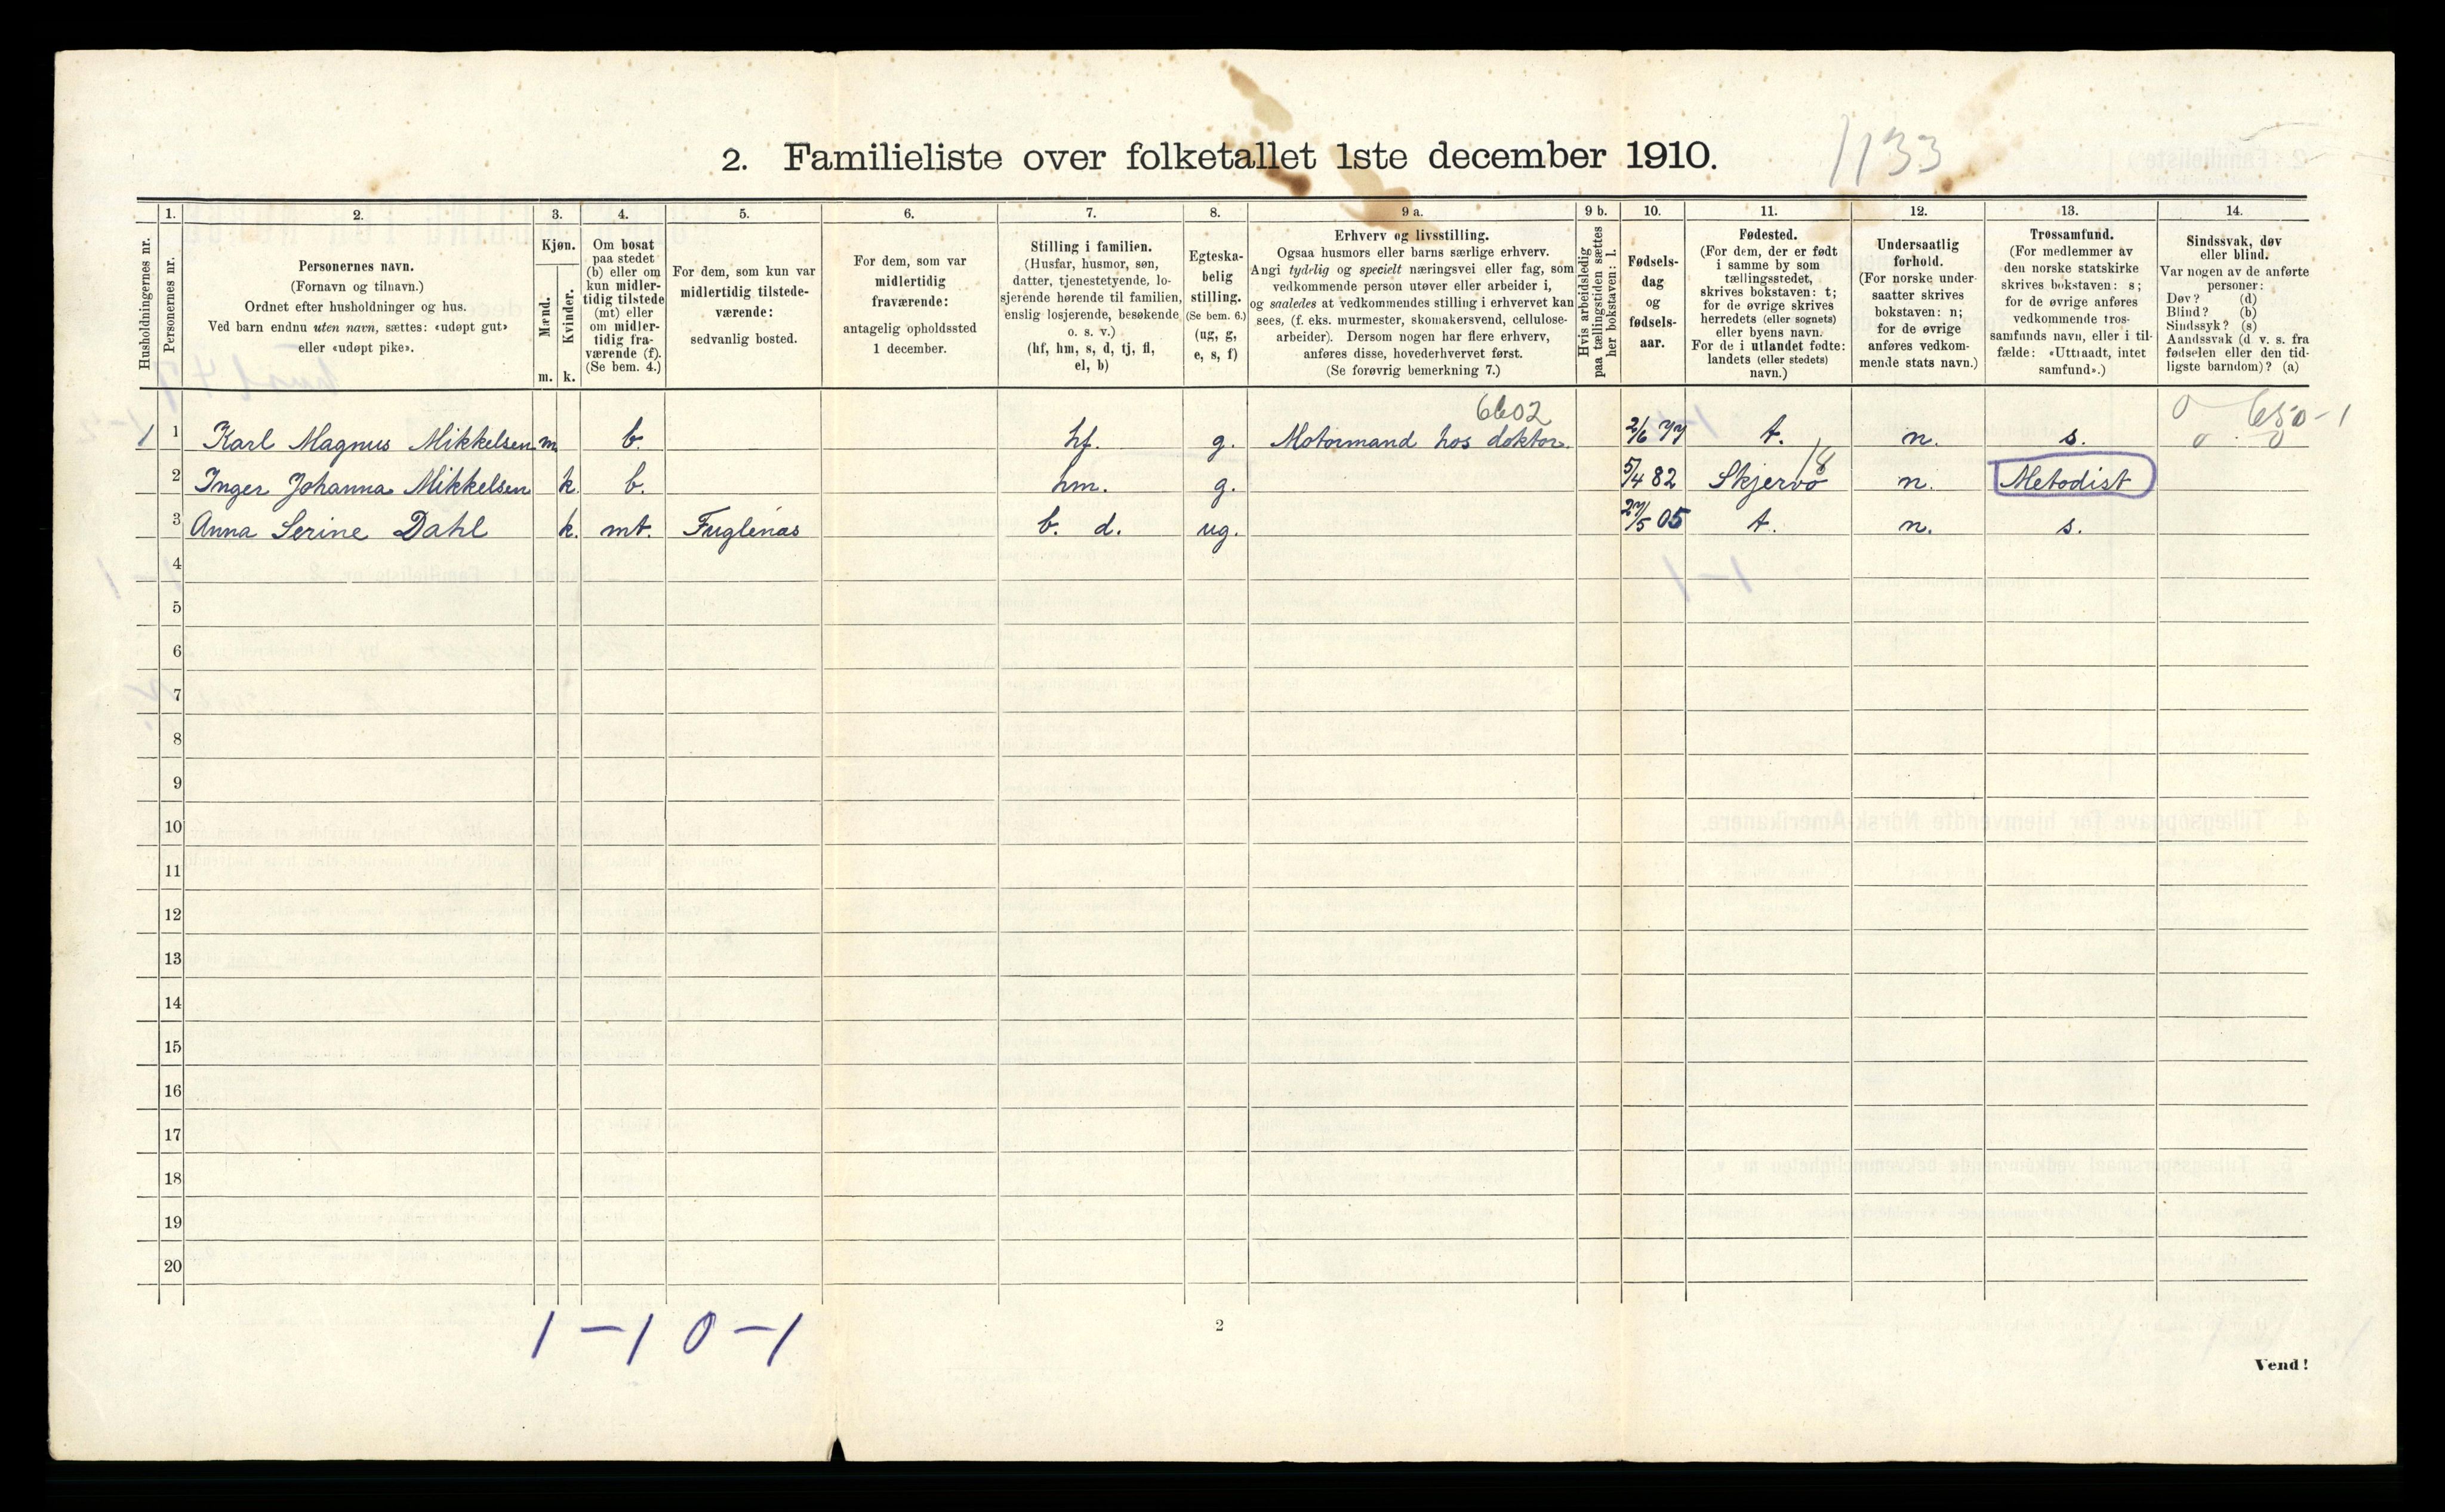 2. Familieliste over folketallet 1ste december 1910.
1133
1. 2. 3. 4. 5. 6. 7. 8. 9 a. 9 b. 10. 11. 12. 13. 14.
Husholdningernes nr.
Personernes nr.
Personernes navn.
(Fornavn og tilnavn.)
Ordnet efter husholdninger og hus.
Ved barn endnu uten navn, sættes: «udøpt gut»
eller «udøpt pike».
Kjøn.
Mænd.
Kvinder.
m. k.
Om bosat
paa stedet
(b) eller om
kun midler-
tidig tilstede
(mt) eller
om midler-
tidig fra-
værende (f).
(Se bem. 4.)
For dem, som kun var
midlertidig tilstede-
værende:
sedvanlig bosted.
For dem, som var
midlertidig
fraværende:
antagelig opholdssted
1 december.
Stilling i familien.
(Husfar, husmor, søn,
datter, tjenestetyende, lo-
sjerende hørende til familien,
enslig losjerende, besøkende
o. s. v.)
(hf, hm, s, d, tj, fl,
el, b)
Egteska-
belig
stilling.
(Se bem. 6.)
(ug, g,
e, s, f)
Erhverv og livsstilling.
Ogsaa husmors eller barns særlige erhverv.
Angi tydelig og specielt næringsvei eller fag, som
vedkommende person utøver eller arbeider i,
og saaledes at vedkommendes stilling i erhvervet kan
sees, (f. eks. murmester, skomakersvend, cellulose-
arbeider). Dersom nogen har flere erhverv,
anføres disse, hovederhvervet først.
(Se forøvrig bemerkning 7.)
Hvis arbeidsledig
paa tællingstiden sættes
her bokstaven: l.
Fødsels-
dag
og
fødsels-
aar.
Fødested.
(For dem, der er født
i samme by som
tællingsstedet,
skrives bokstaven: t;
for de øvrige skrives
herredets (eller sognets)
eller byens navn.
For de i utlandet fødte:
landets (eller stedets)
navn.)
Undersaatlig
forhold.
(For norske under-
saatter skrives
bokstaven: n;
for de øvrige
anføres vedkom-
mende stats navn.)
Trossamfund.
(For medlemmer av
den norske statskirke
skrives bokstaven: s;
for de øvrige anføres
vedkommende tros-
samfunds navn, eller i til-
fælde: «Uttraadt, intet
samfund».)
Sindssvak, døv
eller blind.
Var nogen av de anførte
personer:
Døv? (d)
Blind? (b)
Sindssyk? (s)
Aandssvak (d v. s. fra
fødselen eller den tid-
ligste barndom)? (a)
6602
1 1 Karl Magnus Mikkelsen m. b. hf. g. Motormand hos doktor. 2/6 77 t. n. s.
2 Inger Johanna Mikkelsen k. b. hm. g. 5/4 82 Skjervø n. Metodist
3 Anna Serine Dahl k. mt. Fuglenæs b. d. ug. 27/5 05 t. n. s.
4
5
6
7
8
9
10
11
12
13
14
15
16
17
18
19
20
1-1 0-1
2
Vend!